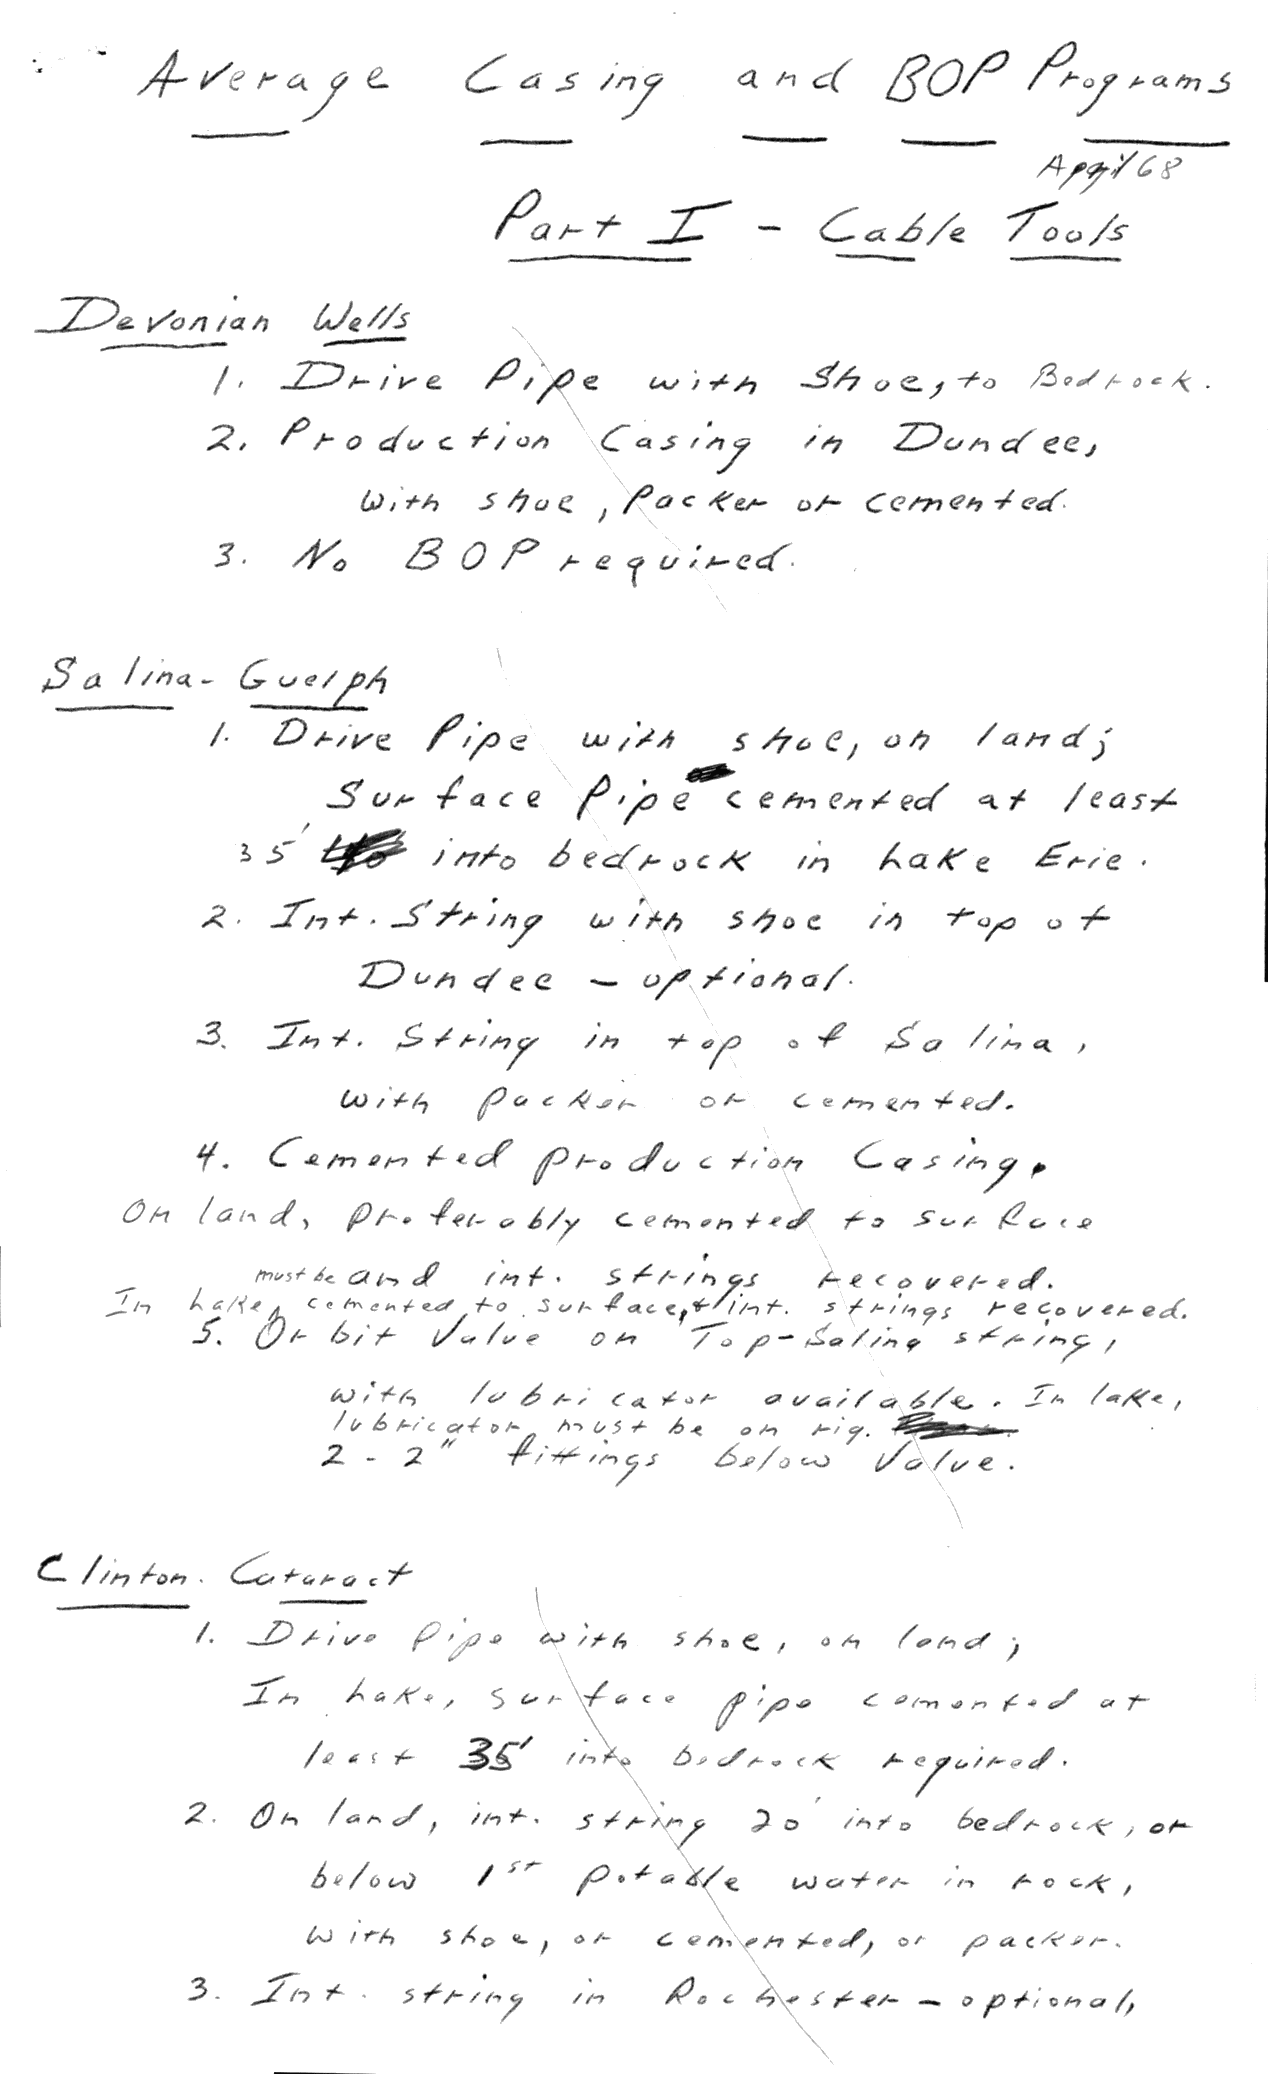 Average Casing and BOP Programs
April 68
Part I - Cable Tools
Devonian Wells
1. Drive Pipe with Shoe, to Bedrock.
2. Production Casing in Dundee,
with shoe, Packer or cemented.
3. No BOP required.
Salina - Guelph
1. Drive Pipe with shoe, on land;
Surface Pipe cemented at least
35' into bedrock in Lake Erie.
2. Int. String with shoe in top of
Dundee - optional.
3. Int. String in top of Salina,
with packer or cemented.
4. Cemented production Casing.
On land, preferably cemented to surface
and int. strings recovered.
In Lake, must be cemented to surface, & int. strings recovered.
5. Orbit Valve on Top-Salina string,
with lubricator available. In lake,
lubricator must be on rig.
2 - 2" fittings below Valve.
Clinton - Cataract
1. Drive Pipe with shoe, on land;
In Lake, surface pipe cemented at
least 35' into bedrock required.
2. On land, int. string 20' into bedrock, or
below 1st potable water in rock,
with shoe, or cemented, or packer.
3. Int. string in Rochester - optional,